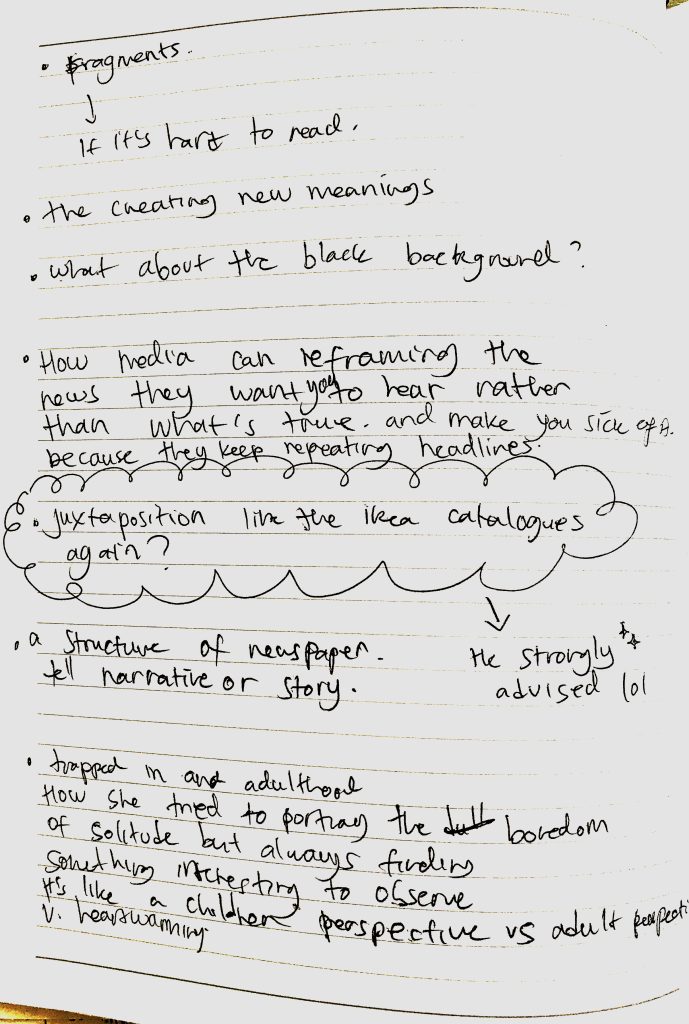 • fragments.
↓
If it's hard to read.
• the creating new meanings
• what about the black background?
• How media can reframing the
news they want you to hear rather
than what's true. and make you sick of it.
because they keep repeating headlines.
• juxtaposition like the ikea catalogues
again?
He strongly
advised lol
• a structure of newspaper.
tell narrative or story.
• trapped in and adulthood
How she tried to portray the boredom
of solitude but always finding
something interesting to observe
it's like a children perspective vs adult perspecti
v. heartwarming.